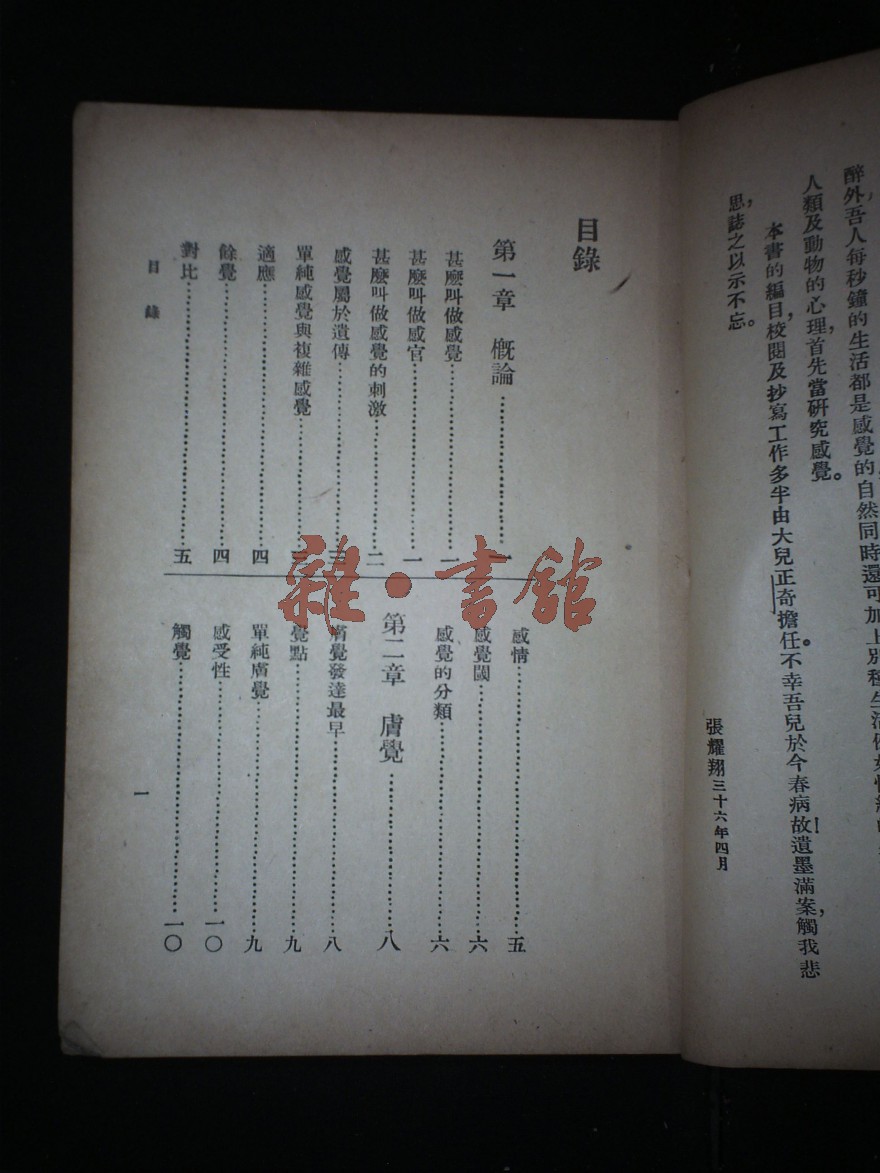 醉外吾人每秒鐘的生活都是感覺的自然同時還可加上別種生活
人類及動物的心理首先當研究感覺。
本書的編目,校閱及抄寫工作多半由大兒正奇擔任。不幸吾兒於今春病故!遺墨滿案,觸我悲
思,誌之以示不忘。
張耀翔三十六年四月
目錄
第一章 概論⋯⋯一
甚麼叫做感覺⋯⋯一
甚麼叫做感官⋯⋯一
甚麼叫做感覺的刺激⋯⋯二
感覺屬於遺傳⋯⋯三
單純感覺與複雜感覺⋯⋯
適應⋯⋯四
餘覺⋯⋯四
對比⋯⋯五
感情⋯⋯五
感覺閾⋯⋯六
感覺的分類⋯⋯六
第二章 膚覺⋯⋯八
膚覺發達最早⋯⋯八
覺點⋯⋯九
單純膚覺⋯⋯九
感受性⋯⋯一〇
觸覺⋯⋯一〇
目錄
一
雜·書館